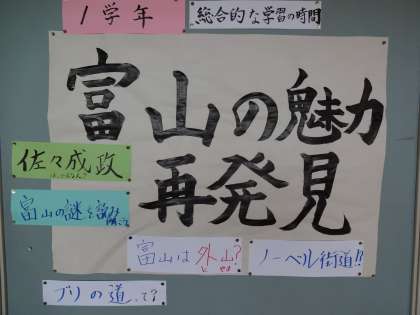 1学年
総合的な学習の時間
富山の魅力
再発見
佐々成政
富山の謎を
富山は外山?
と やま
ノーベル街道!!
ブリの道って?